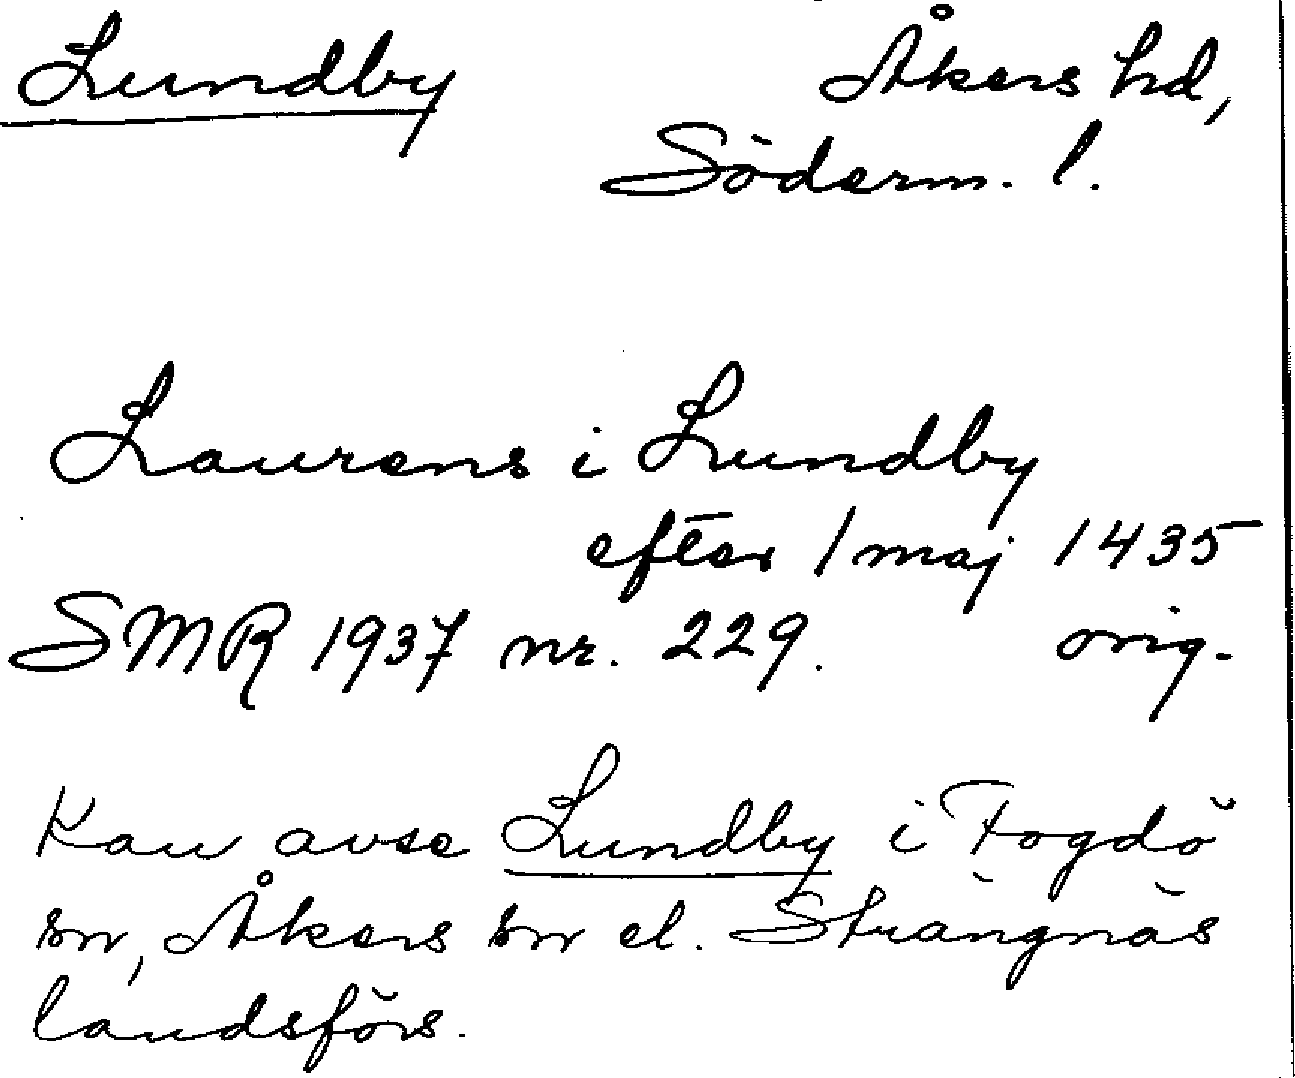 Lundby Åkers hd,
Söderm. l.
Laurens i Lundby
efter 1 maj 1435
SMR 1937 nr. 229. orig.
Kan avse Lundby i Fogdö
sn, Åkers sn el. Strängnäs
landsförs.